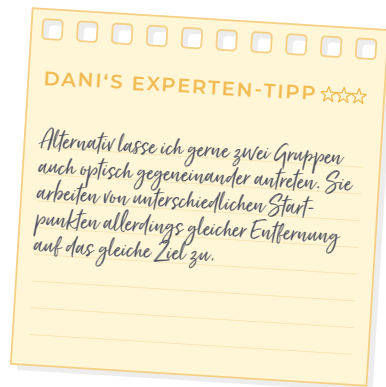 DANI‘S EXPERTEN-TIPP
Alternativ lasse ich gerne zwei Gruppen
auch optisch gegeneinander antreten. Sie
arbeiten von unterschiedlichen Start-
punkten allerdings gleicher Entfernung
auf das gleiche Ziel zu.